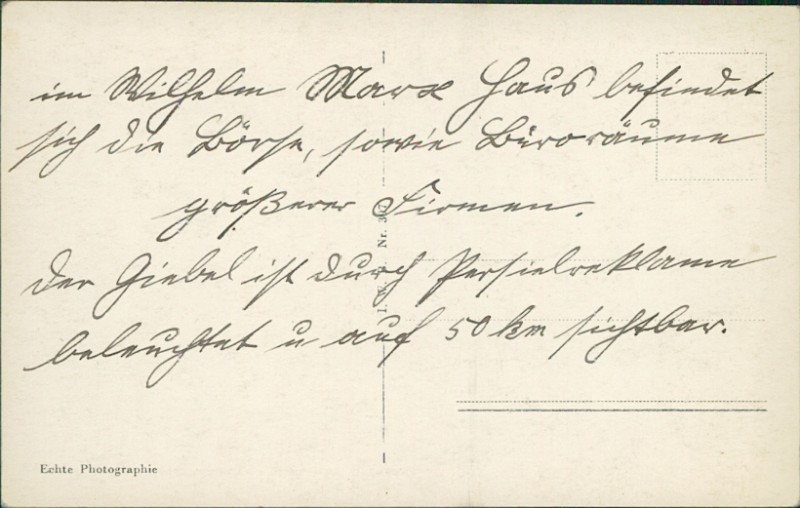 im Wilhelm Marx Haus befindet
sich die Börse, sowie Büroräume
größerer Firmen.
Der Giebel ist durch Persielreklame
beleuchtet u auf 50 km sichtbar.
Nr.
Echte Photographie